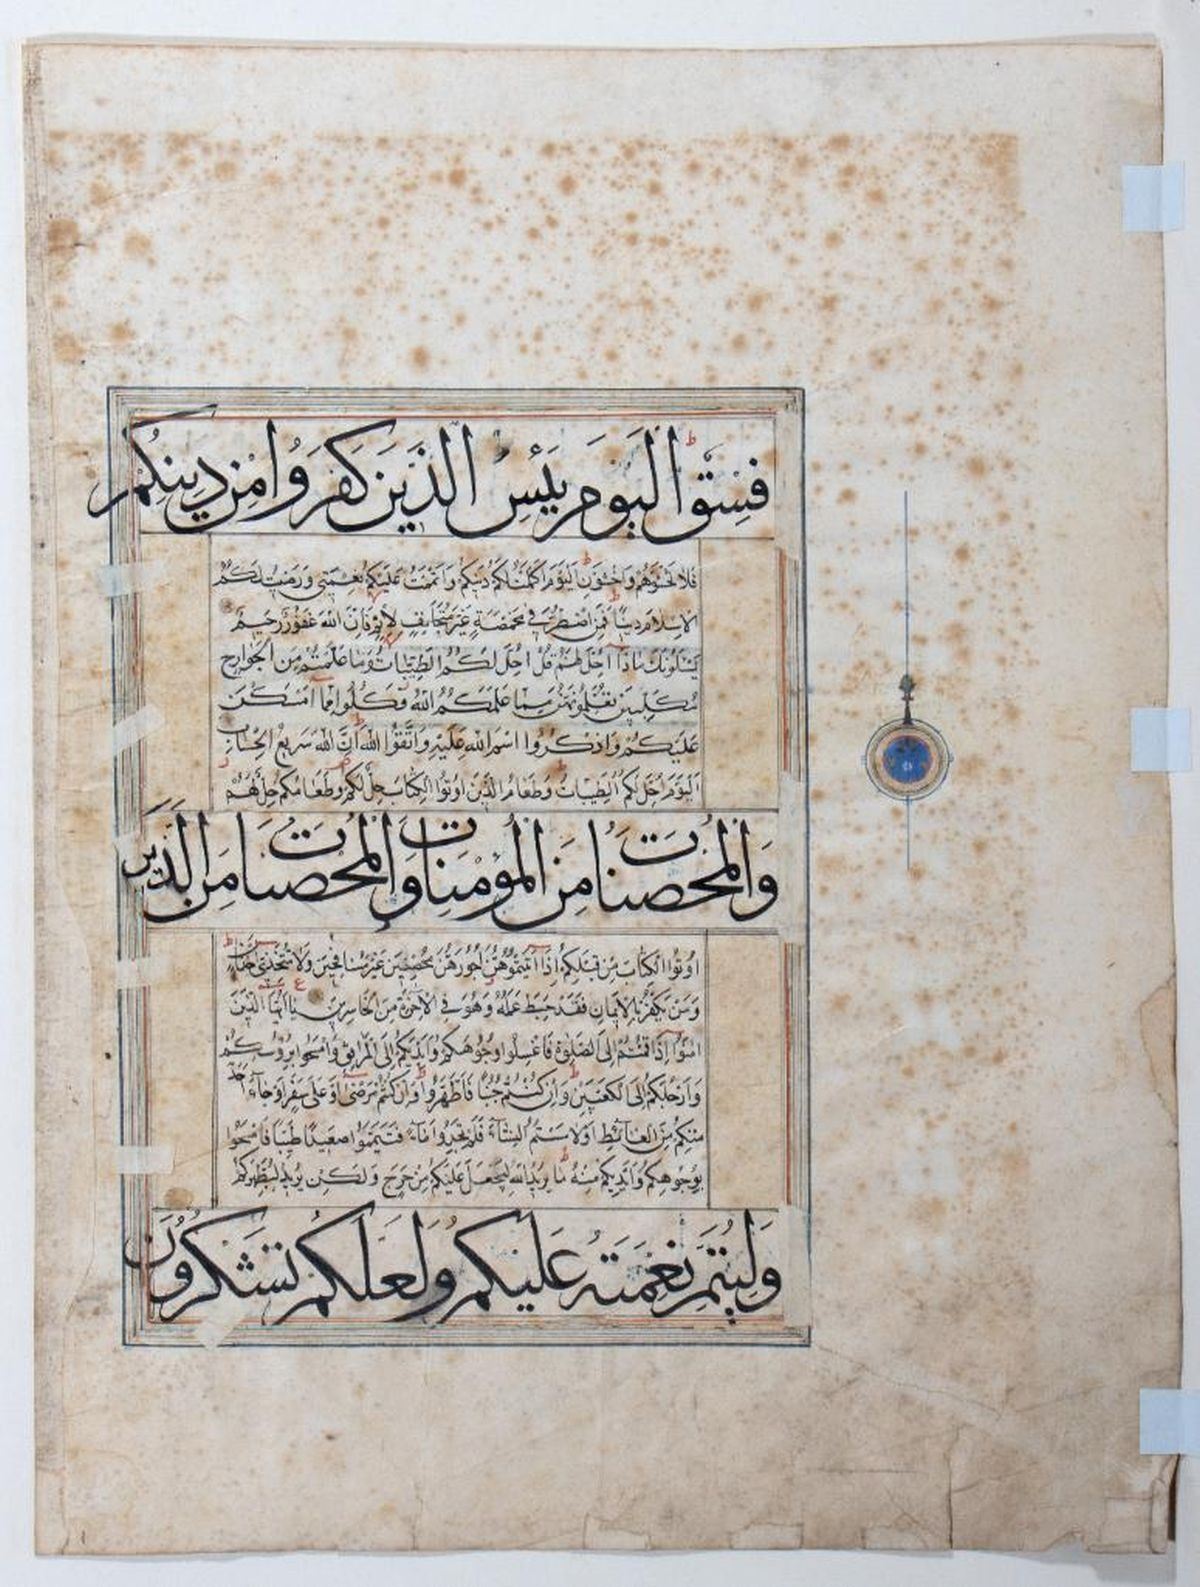 فِسْقٌ الْيَوْمَ يَئِسَ الَّذِينَ كَفَرُوا مِنْ دِينِكُمْ
فَلَا تَخْشَوْهُمْ وَاخْشَوْنِ الْيَوْمَ أَكْمَلْتُ لَكُمْ دِينَكُمْ وَأَتْمَمْتُ عَلَيْكُمْ نِعْمَتِي وَرَضِيتُ لَكُمُ
الْإِسْلَامَ دِينًا فَمَنِ اضْطُرَّ فِي مَخْمَصَةٍ غَيْرَ مُتَجَانِفٍ لِإِثْمٍ فَإِنَّ اللَّهَ غَفُورٌ رَحِيمٌ
يَسْأَلُونَكَ مَاذَا أُحِلَّ لَهُمْ قُلْ أُحِلَّ لَكُمُ الطَّيِّبَاتُ وَمَا عَلَّمْتُمْ مِنَ الْجَوَارِحِ
مُكَلِّبِينَ تُعَلِّمُونَهُنَّ مِمَّا عَلَّمَكُمُ اللَّهُ فَكُلُوا مِمَّا أَمْسَكْنَ
عَلَيْكُمْ وَاذْكُرُوا اسْمَ اللَّهِ عَلَيْهِ وَاتَّقُوا اللَّهَ إِنَّ اللَّهَ سَرِيعُ الْحِسَابِ
الْيَوْمَ أُحِلَّ لَكُمُ الطَّيِّبَاتُ وَطَعَامُ الَّذِينَ أُوتُوا الْكِتَابَ حِلٌّ لَكُمْ وَطَعَامُكُمْ حِلٌّ لَهُمْ
وَالْمُحْصَنَاتُ مِنَ الْمُؤْمِنَاتِ وَالْمُحْصَنَاتُ مِنَ الَّذِينَ
أُوتُوا الْكِتَابَ مِنْ قَبْلِكُمْ إِذَا آتَيْتُمُوهُنَّ أُجُورَهُنَّ مُحْصِنِينَ غَيْرَ مُسَافِحِينَ وَلَا مُتَّخِذِي أَخْدَانٍ
وَمَنْ يَكْفُرْ بِالْإِيمَانِ فَقَدْ حَبِطَ عَمَلُهُ وَهُوَ فِي الْآخِرَةِ مِنَ الْخَاسِرِينَ يَا أَيُّهَا الَّذِينَ
آمَنُوا إِذَا قُمْتُمْ إِلَى الصَّلٰوةِ فَاغْسِلُوا وُجُوهَكُمْ وَأَيْدِيَكُمْ إِلَى الْمَرَافِقِ وَامْسَحُوا بِرُءُوسِكُمْ
وَأَرْجُلَكُمْ إِلَى الْكَعْبَيْنِ وَإِنْ كُنْتُمْ جُنُبًا فَاطَّهَّرُوا وَإِنْ كُنْتُمْ مَرْضَىٰ أَوْ عَلَىٰ سَفَرٍ أَوْ جَاءَ أَحَدٌ
مِنْكُمْ مِنَ الْغَائِطِ أَوْ لَامَسْتُمُ النِّسَاءَ فَلَمْ تَجِدُوا مَاءً فَتَيَمَّمُوا صَعِيدًا طَيِّبًا فَامْسَحُوا
بِوُجُوهِكُمْ وَأَيْدِيكُمْ مِنْهُ مَا يُرِيدُ اللَّهُ لِيَجْعَلَ عَلَيْكُمْ مِنْ حَرَجٍ وَلَٰكِنْ يُرِيدُ لِيُطَهِّرَكُمْ
وَلِيُتِمَّ نِعْمَتَهُ عَلَيْكُمْ وَلَعَلَّكُمْ تَشْكُرُونَ